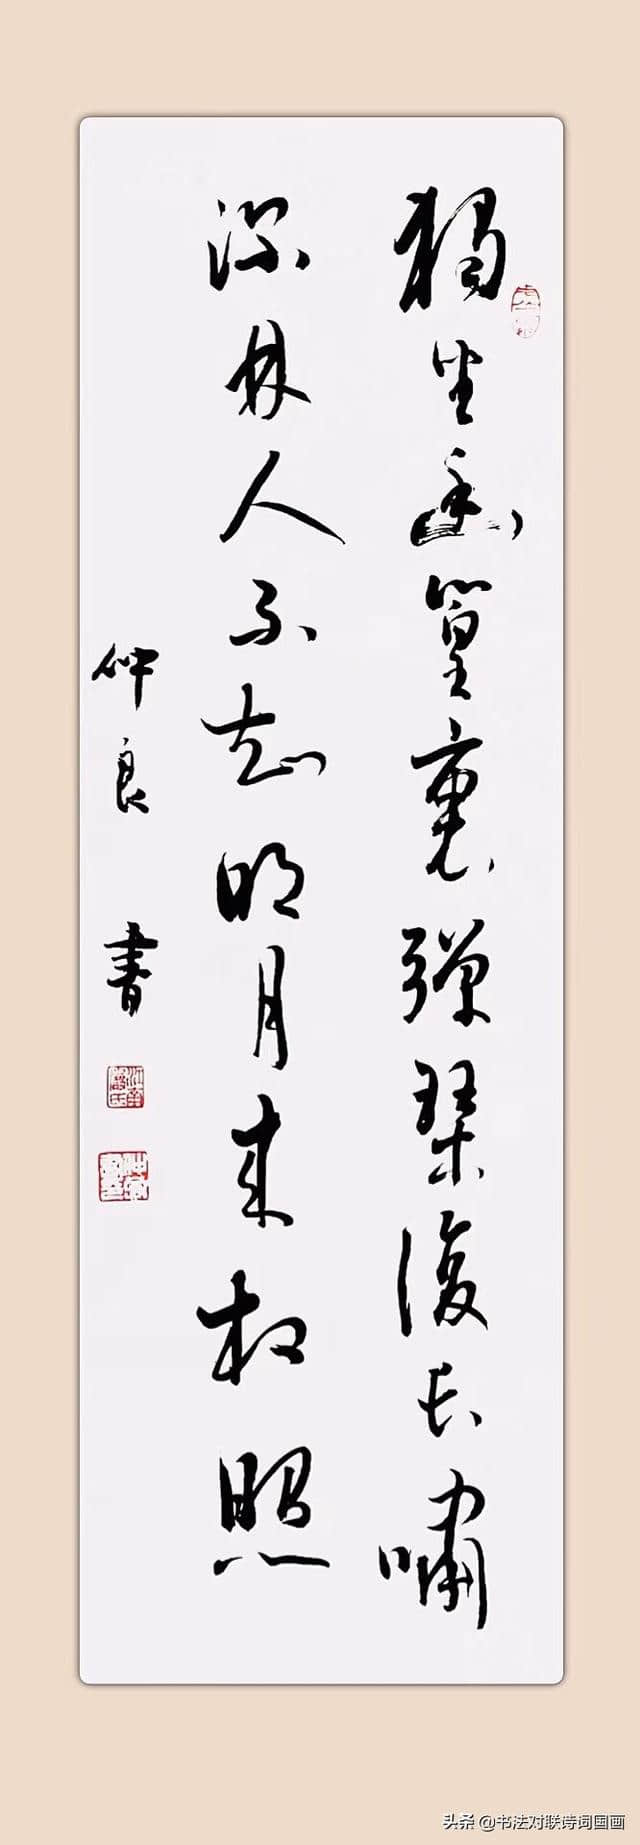 獨坐幽篁裏彈琴復長嘯
深林人不知明月來相照
仲良書
头条 @书法对联诗词国画